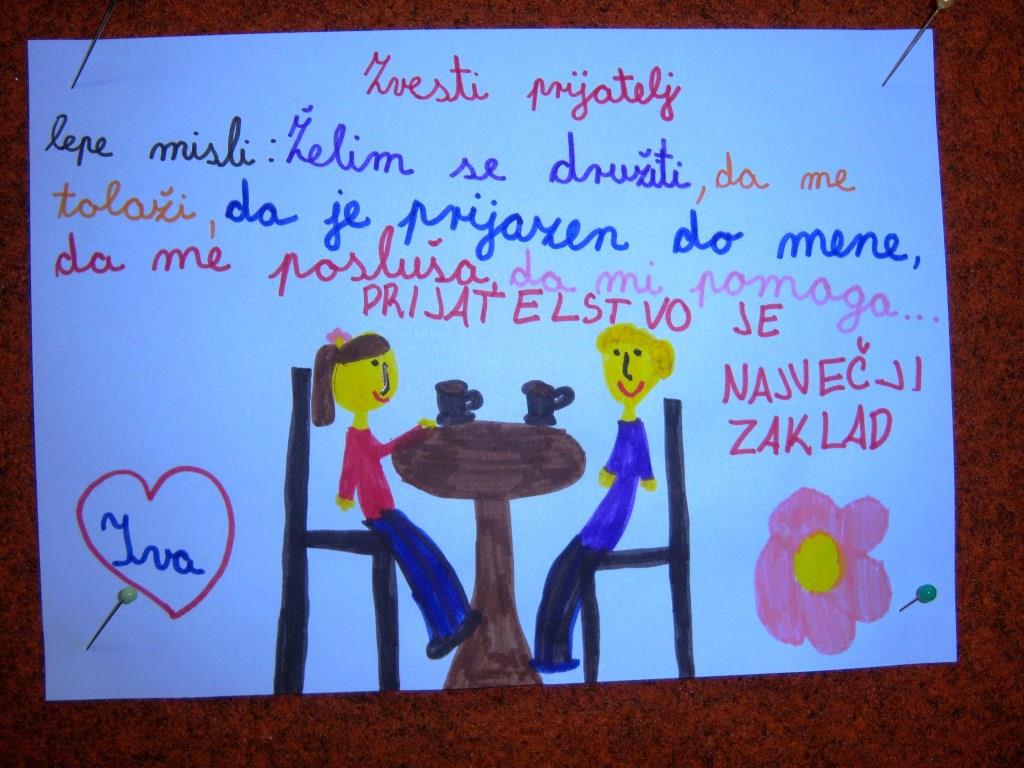 Zvesti prijatelj
lepe misli: Želim se družiti, da me
tolaži, da je prijazen do mene,
da me posluša, da mi pomaga...
PRIJATELSTVO JE
NAJVEČJI
ZAKLAD
Iva